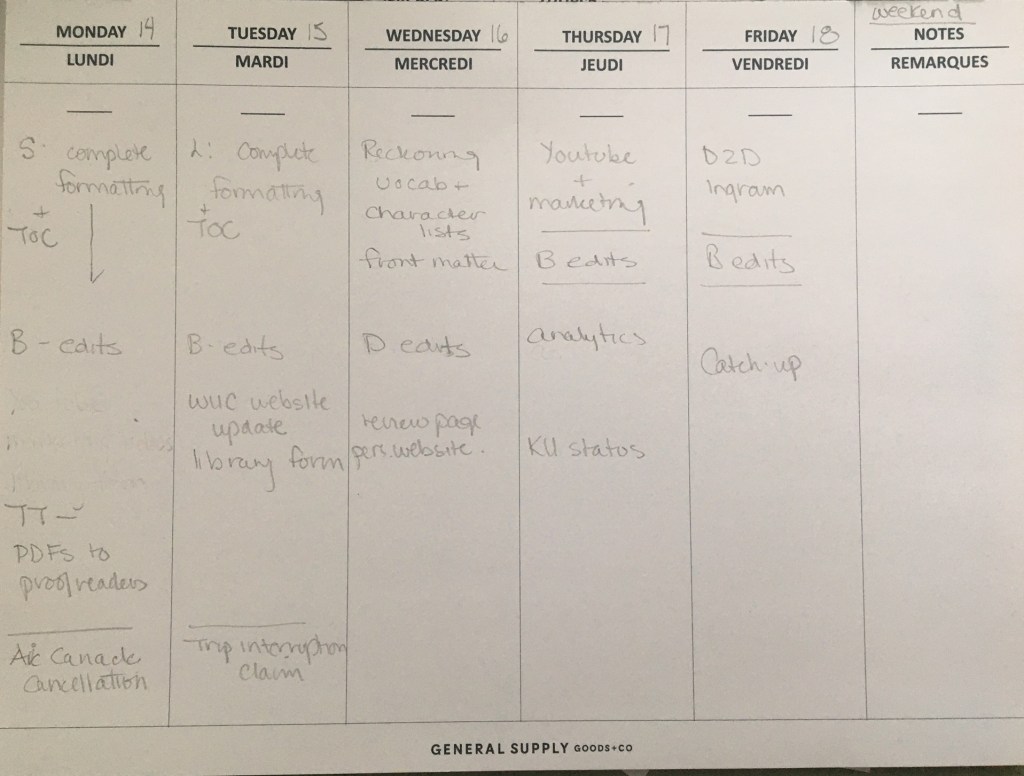 weekend
MONDAY 14
LUNDI
S: complete
formatting
+
TOC
B - edits
TT -
PDFs to
proofreaders
Air Canada
Cancellation
TUESDAY 15
MARDI
L: Complete
formatting
+
TOC
B - edits
WUC website
update
library form
Trip interruption
Claim
WEDNESDAY 16
MERCREDI
Reckoning
vocab +
character
lists
front matter
D edits
review page
pers. website.
THURSDAY 17
JEUDI
Youtube
+
marketing
B edits
analytics
KU status
FRIDAY 18
VENDREDI
D2D
Ingram
B edits
Catch-up
NOTES
REMARQUES
GENERAL SUPPLY GOODS+CO